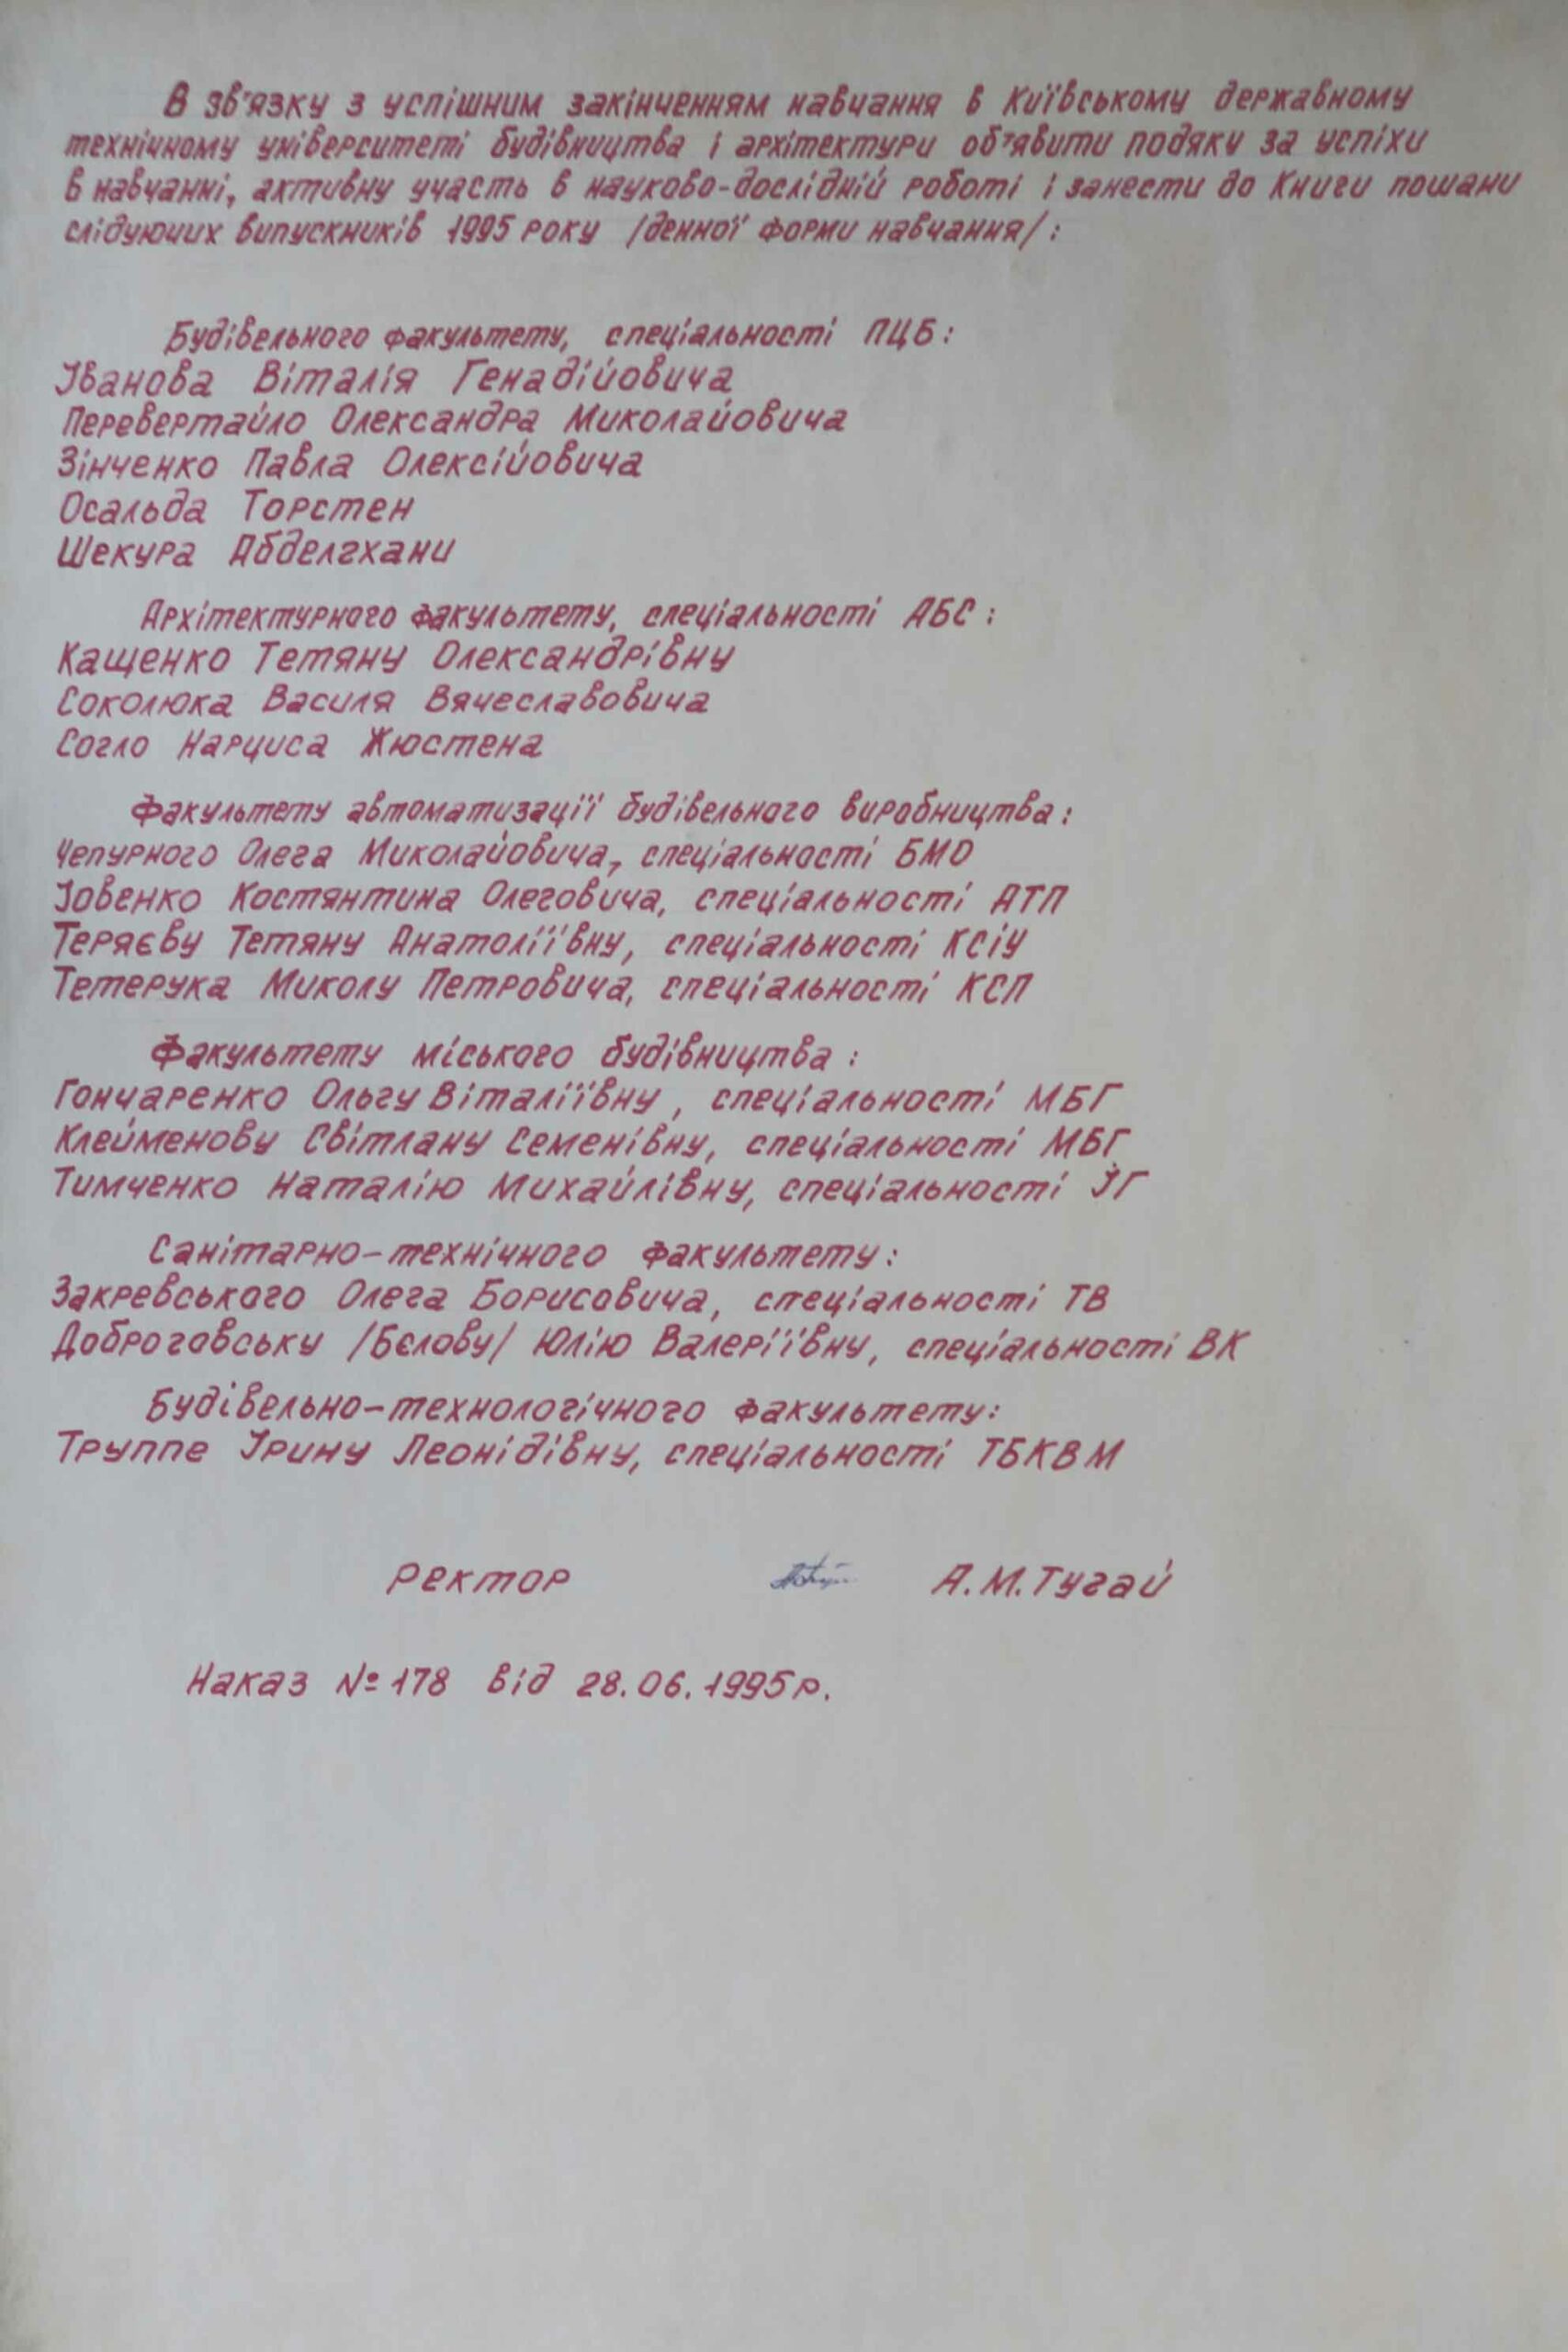 В зв'язку з успішним закінченням навчання в Київському державному
технічному університеті будівництва і архітектури об'явити подяку за успіхи
в навчанні, активну участь в науково-дослідній роботі і занести до Книги пошани
слідуючих випускників 1995 року /денної форми навчання/:
Будівельного факультету, спеціальності ПЦБ:
Іванова Віталія Генадійовича
Перевертайло Олександра Миколайовича
Зінченко Павла Олексійовича
Осальда Торстен
Шекура Абделгхани
Архітектурного факультету, спеціальності АБС:
Кащенко Тетяну Олександрівну
Соколюка Василя Вячеславовича
Согло Нарциса Жюстена
Факультету автоматизації будівельного виробництва:
Чепурного Олега Миколайовича, спеціальності БМО
Іовенко Костянтина Олеговича, спеціальності АТП
Теряєву Тетяну Анатоліївну, спеціальності КСІУ
Тетерука Миколу Петровича, спеціальності КСП
Факультету міського будівництва:
Гончаренко Ольгу Віталіївну, спеціальності МБГ
Клейменову Світлану Семенівну, спеціальності МБГ
Тимченко Наталію Михайлівну, спеціальності ІГ
Санітарно-технічного факультету:
Закревського Олега Борисовича, спеціальності ТВ
Доброговську /Бєлову/ Юлію Валеріївну, спеціальності ВК
Будівельно-технологічного факультету:
Труппе Ірину Леонідівну, спеціальності ТБКВМ
Ректор А.М.Тугай
Наказ № 178 від 28.06.1995р.